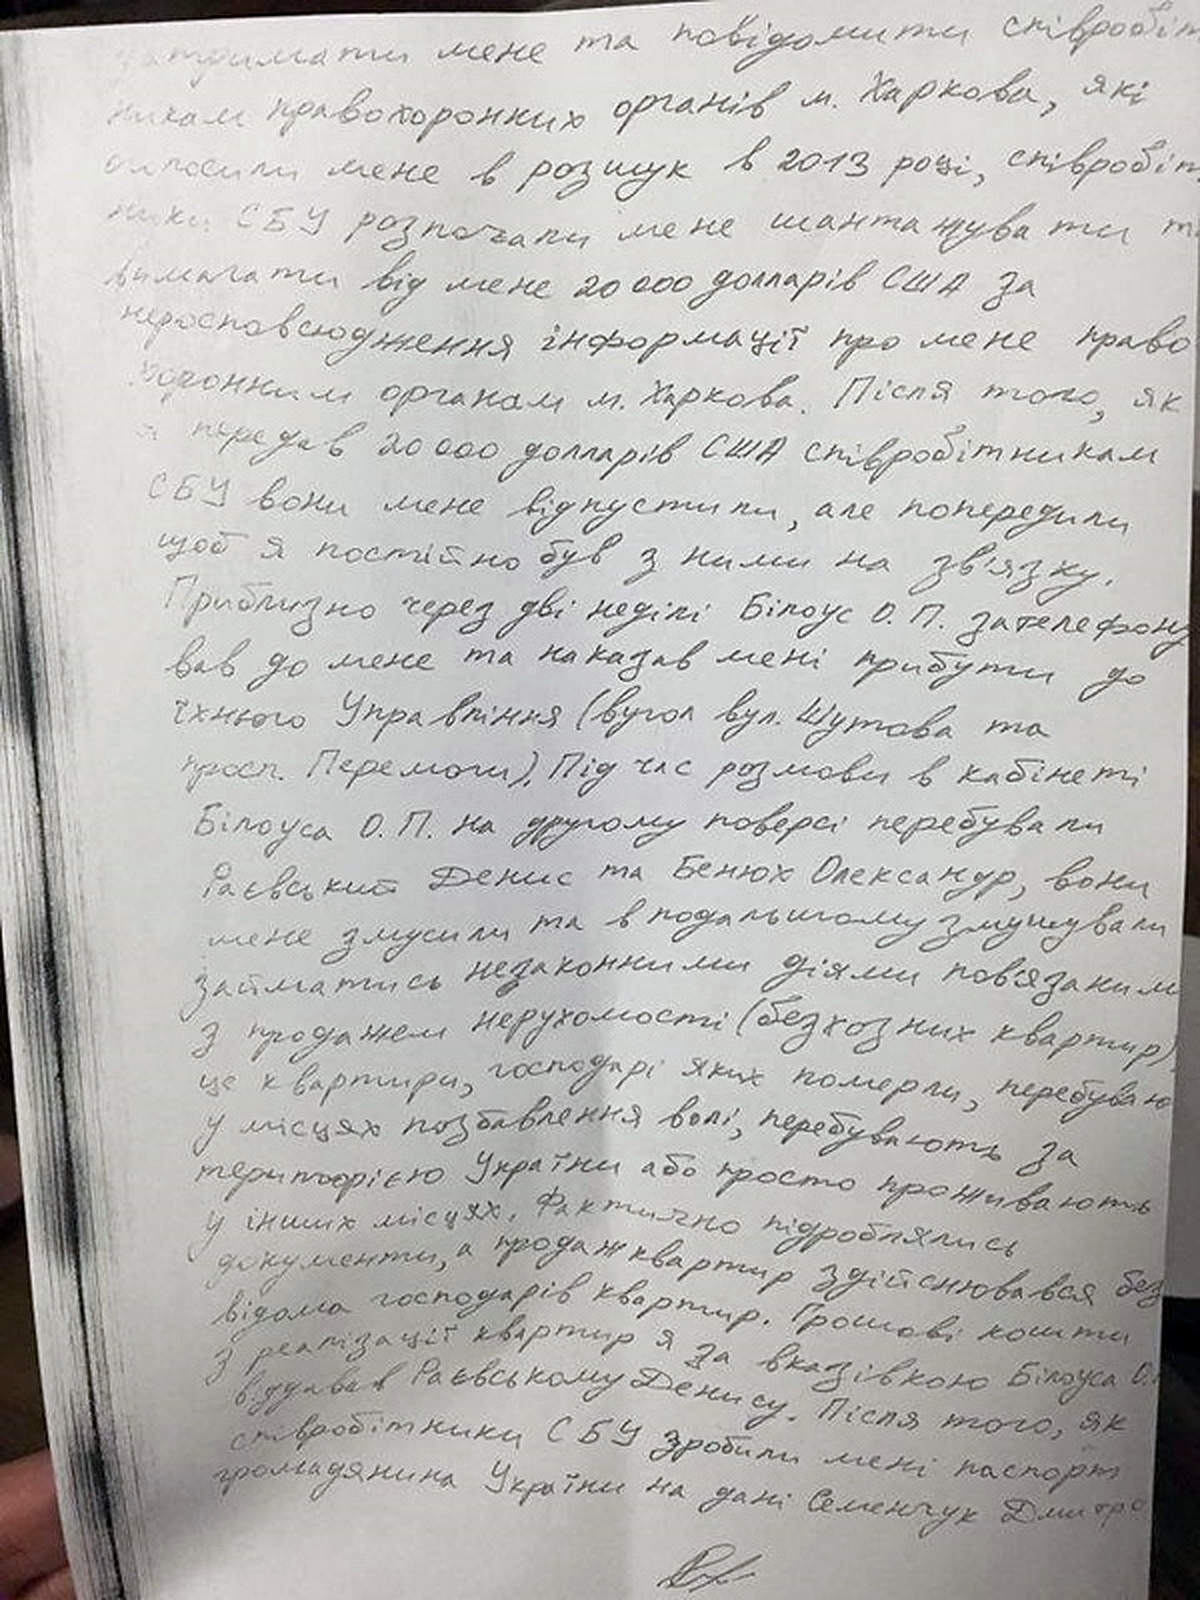 затримати мене та повідомити співробіт
никам правохоронних органів м. Харкова, які
оголосили мене в розшук в 2013 році, співробіт
ники СБУ розпочали мене шантажувати та
вимагати від мене 20 000 долларів США за
нерозповсюдження інформації про мене право
хоронним органам м. Харкова. Після того, як
я передав 20 000 долларів США співробітникам
СБУ вони мене відпустили, але попередили
щоб я постійно був з ними на зв'язку.
Приблизно через дві неділі Білоус О.П. зателефону
вав до мене та наказав мені прибути до
їхнього Управління (вугол вул. Шутова та
просп. Перемоги). Під час розмови в кабінеті
Білоуса О.П. на другому поверсі перебували
Раєвський Денис та Бенюх Олександр, вони
мене змусили та в подальшому змушували
займатись незаконними діями пов'язаними
з продажем нерухомості (безхозних квартир)
це квартири, господарі яких померли, перебуваю
у місцях позбавлення волі, перебувають за
територією України або просто проживають
у інших місцях. Фактично підроблялись
документи, а продаж квартир здійснювався без
відома господарів квартир. Грошові кошти
з реалізації квартир я за вказівкою Білоуса О.
віддавав Раєвському Денису. Після того, як
співробітники СБУ зробили мені паспорт
громадянина України на дані Семенчук Дмитро